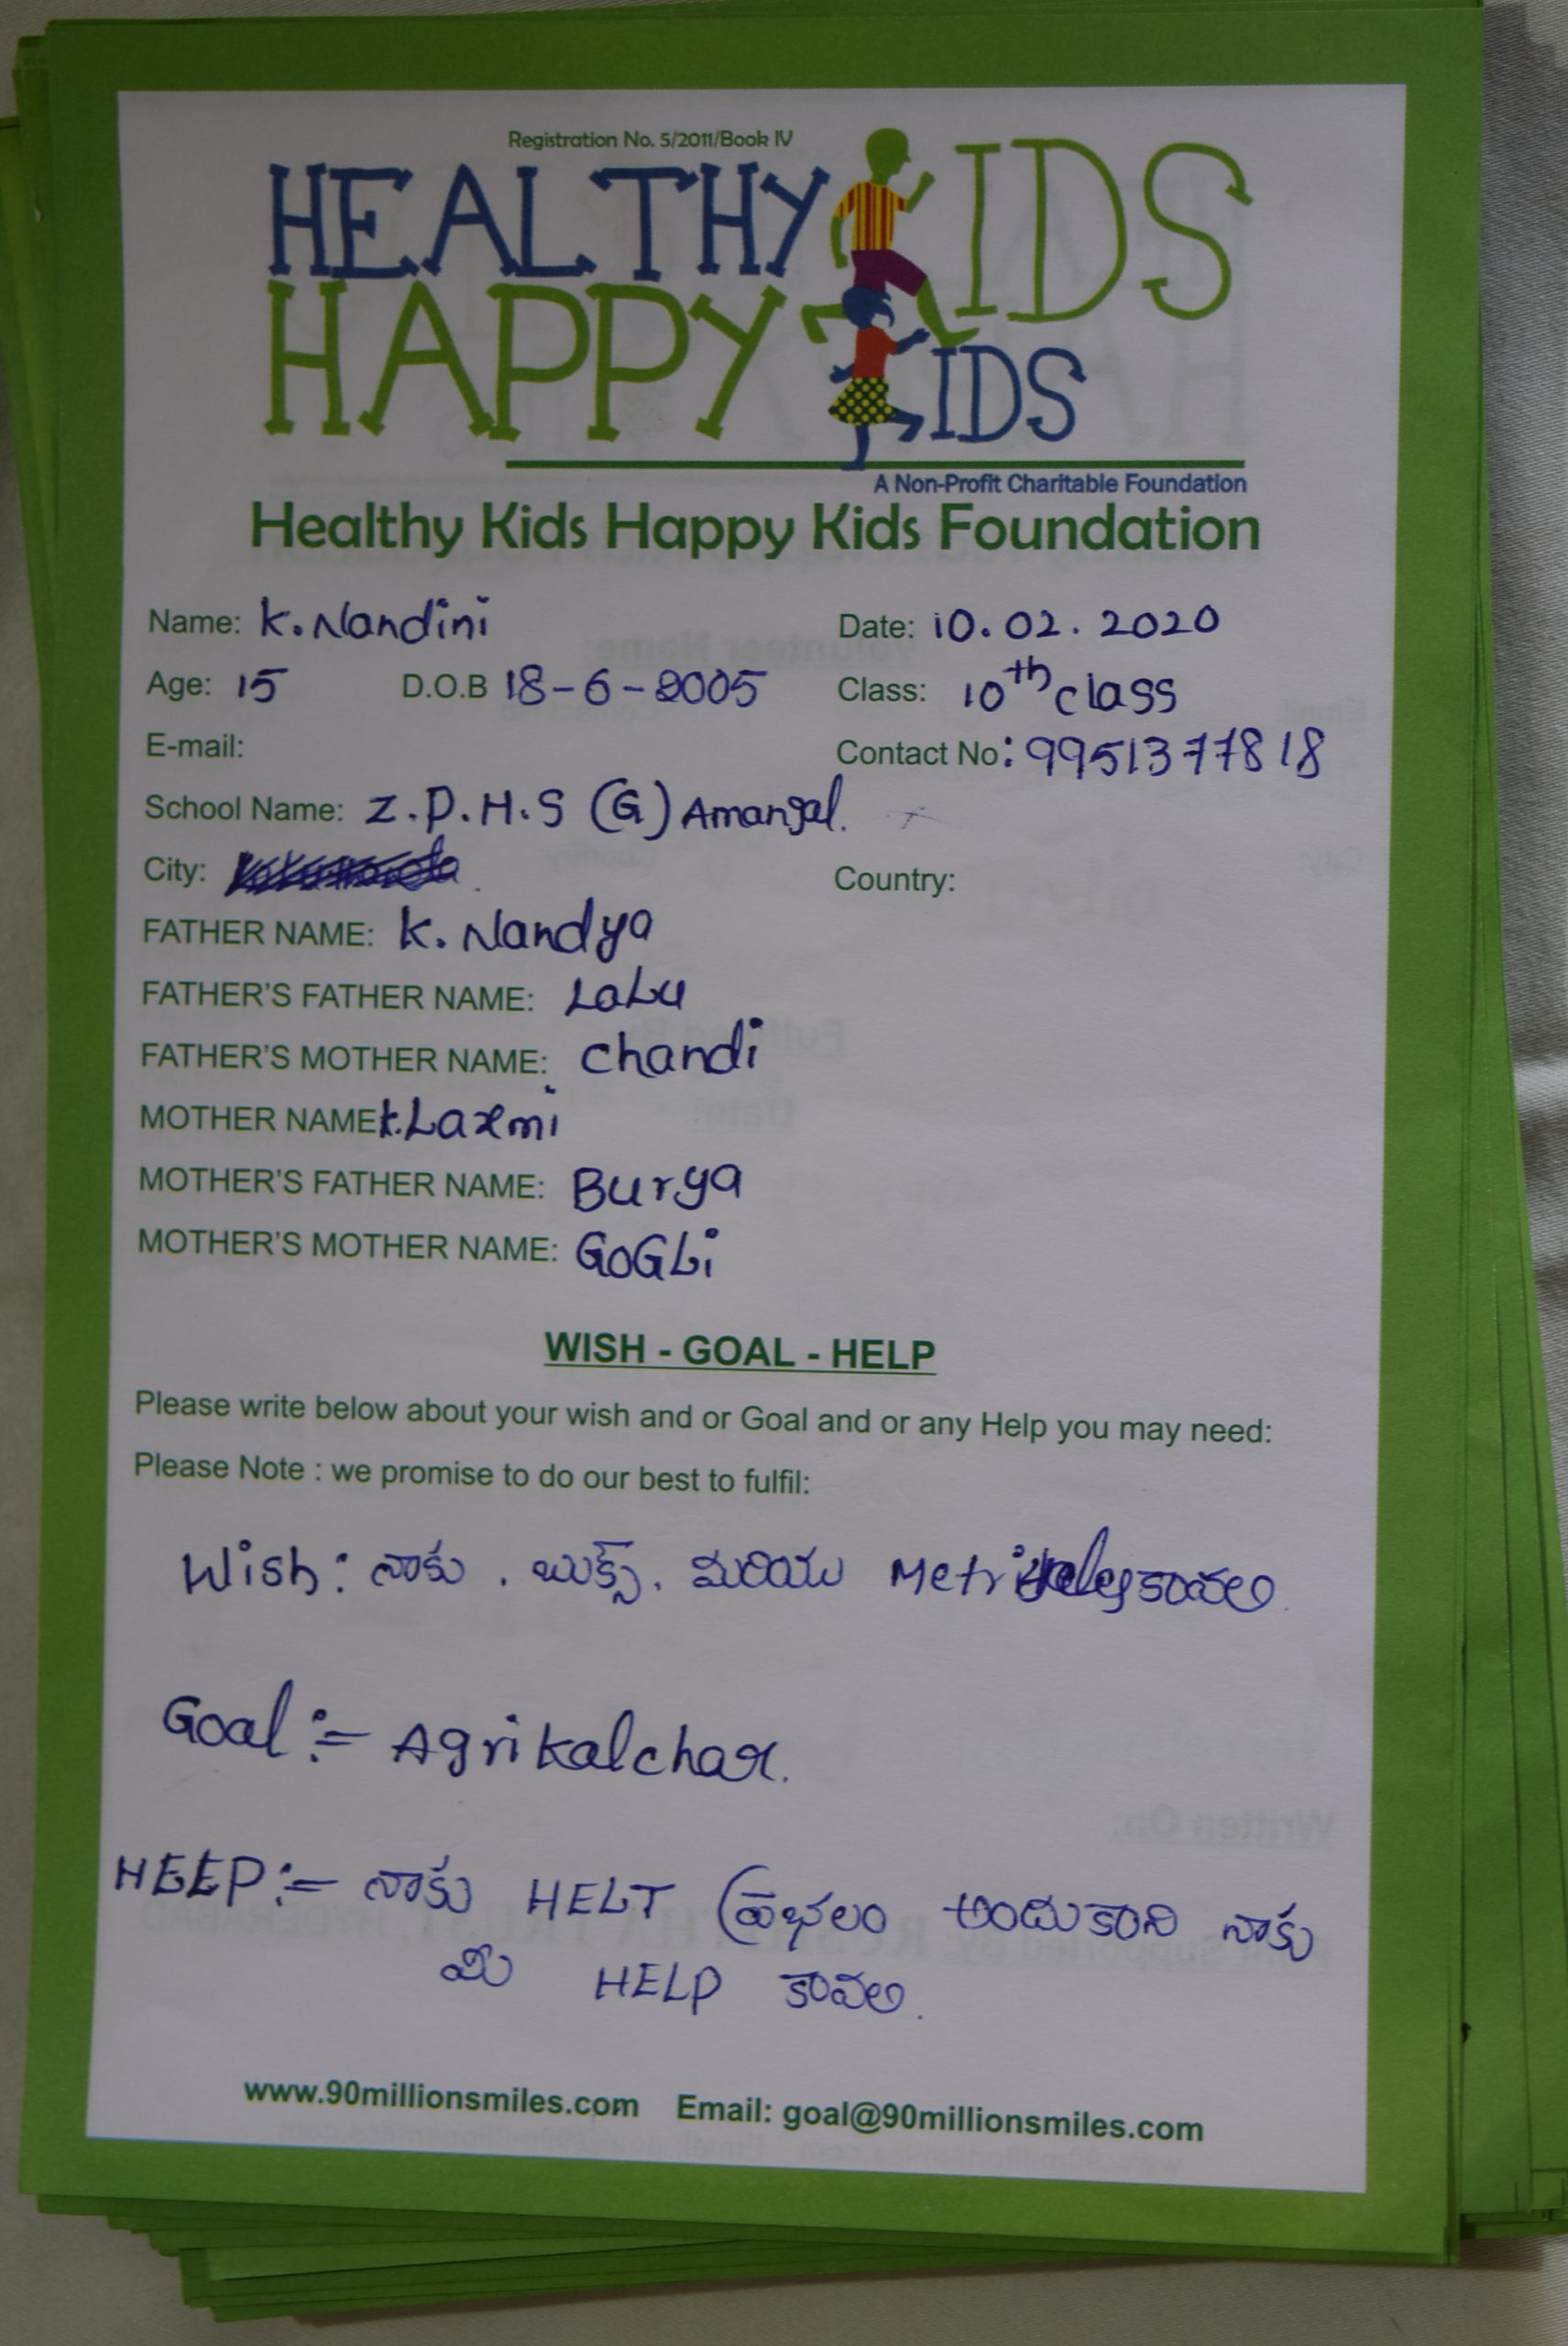 Registration No. 5/2011/Book IV
HEALTHY KIDS
HAPPY KIDS
A Non-Profit Charitable Foundation
Healthy Kids Happy Kids Foundation
Name: K. Nandini Date: 10.02.2020
Age: 15 D.O.B 18-6-2005 Class: 10th class
E-mail: Contact No: 9951377818
School Name: Z.P.H.S (G) Amangal.
City: Country:
FATHER NAME: K. Nandya
FATHER'S FATHER NAME: LaLu
FATHER'S MOTHER NAME: chandi
MOTHER NAME: K. Laxmi
MOTHER'S FATHER NAME: Burya
MOTHER'S MOTHER NAME: GoGLi
WISH - GOAL - HELP
Please write below about your wish and or Goal and or any Help you may need:
Please Note : we promise to do our best to fulfil:
Wish: నాకు . బుక్స్. మరియు కావలి.
Goal :- Agrikalchar.
HEEP:- నాకు HELT ప్రాభలం అందుకాని నాకు
మీ HELP కావలి.
www.90millionsmiles.com Email: goal@90millionsmiles.com